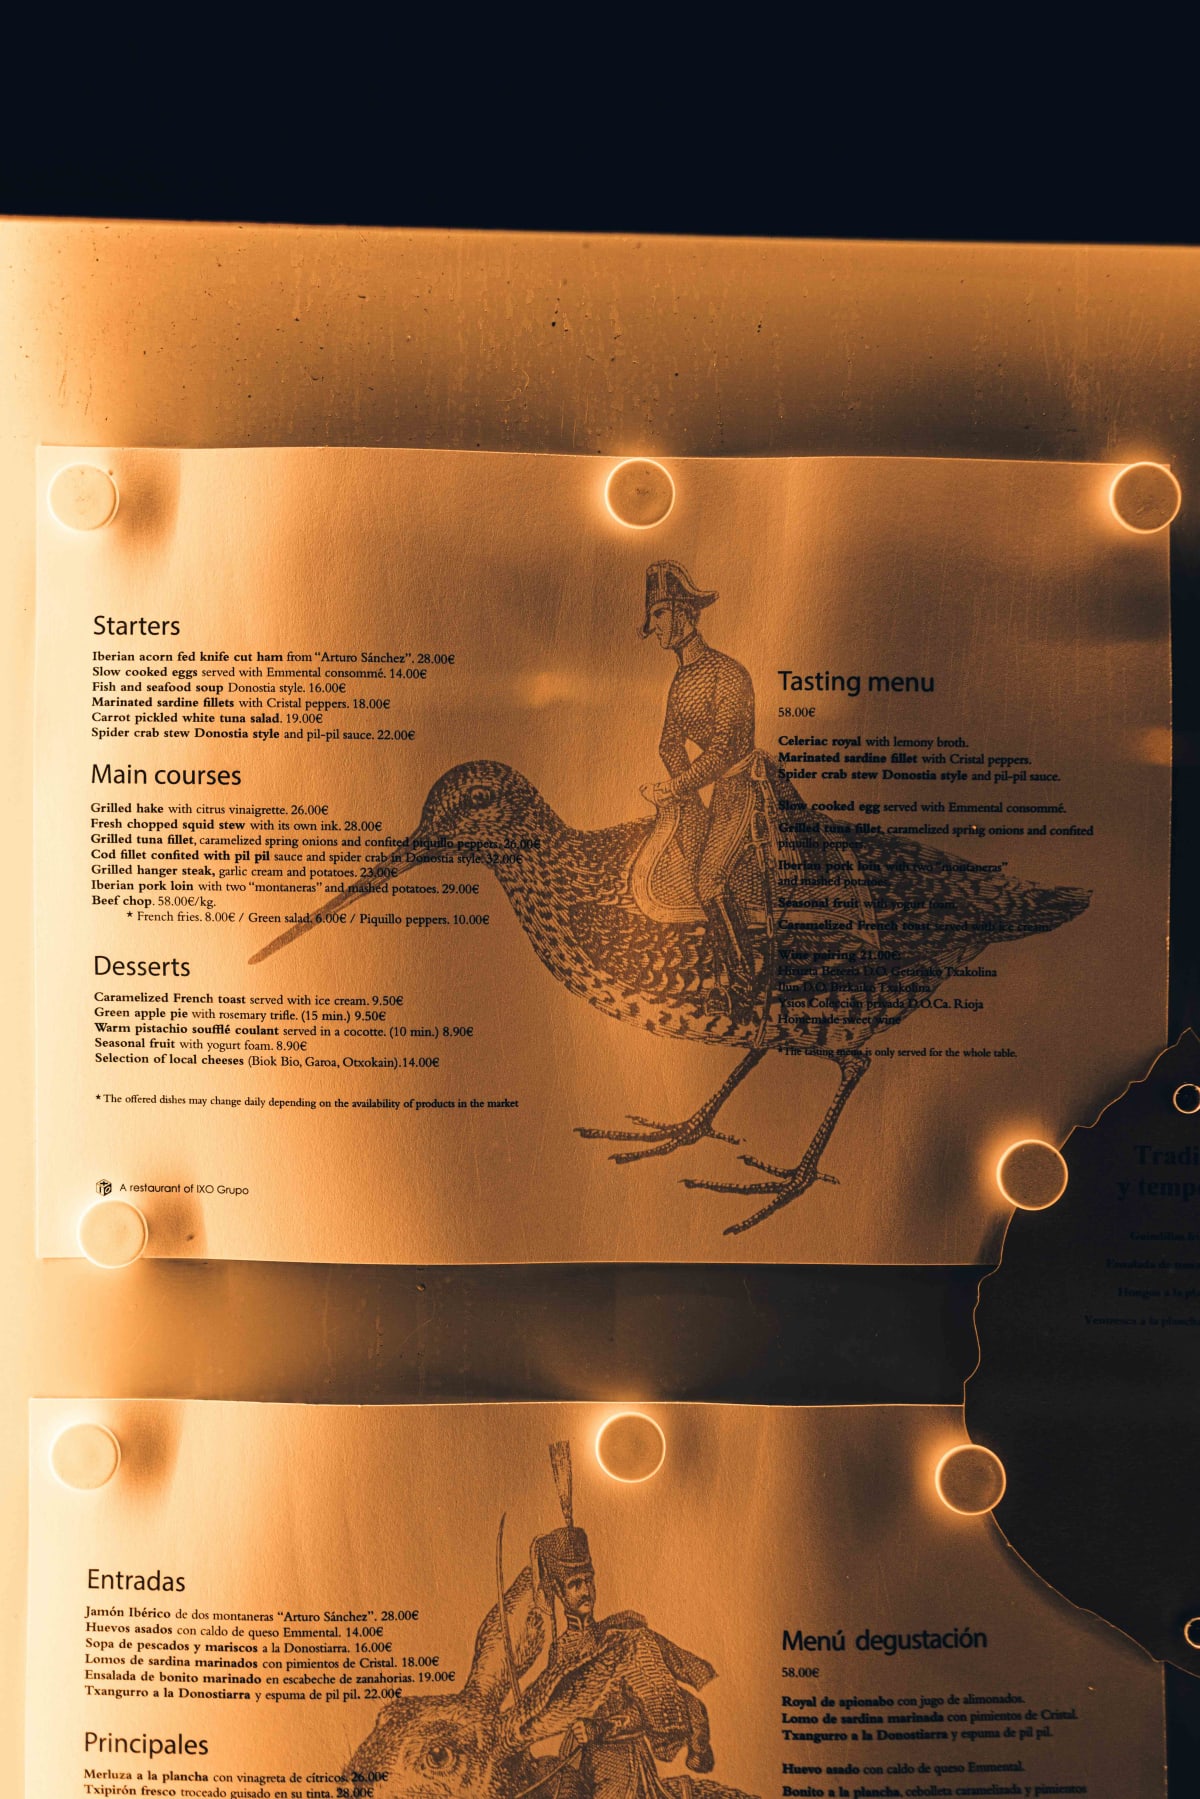 Starters
Iberian acorn fed knife cut ham from “Arturo Sánchez”. 28.00€
Slow cooked eggs served with Emmental consommé. 14.00€
Fish and seafood soup Donostia style. 16.00€
Marinated sardine fillets with Cristal peppers. 18.00€
Carrot pickled white tuna salad. 19.00€
Spider crab stew Donostia style and pil-pil sauce. 22.00€
Main courses
Grilled hake with citrus vinaigrette. 26.00€
Fresh chopped squid stew with its own ink. 28.00€
Grilled tuna fillet, caramelized spring onions and confited piquillo peppers. 26.00€
Cod fillet confited with pil pil sauce and spider crab in Donostia style. 32.00€
Grilled hanger steak, garlic cream and potatoes. 23.00€
Iberian pork loin with two “montaneras” and mashed potatoes. 29.00€
Beef chop. 58.00€/kg.
* French fries. 8.00€ / Green salad. 6.00€ / Piquillo peppers. 10.00€
Desserts
Caramelized French toast served with ice cream. 9.50€
Green apple pie with rosemary trifle. (15 min.) 9.50€
Warm pistachio soufflé coulant served in a cocotte. (10 min.) 8.90€
Seasonal fruit with yogurt foam. 8.90€
Selection of local cheeses (Biok Bio, Garoa, Otxokain).14.00€
* The offered dishes may change daily depending on the availability of products in the market
A restaurant of IXO Grupo
Tasting menu
58.00€
Celeriac royal with lemony broth.
Marinated sardine fillet with Cristal peppers.
Spider crab stew Donostia style and pil-pil sauce.
Slow cooked egg served with Emmental consommé.
Grilled tuna fillet, caramelized spring onions and confited
piquillo peppers.
Iberian pork loin with two “montaneras”
and mashed potatoes.
Seasonal fruit with yogurt foam.
Caramelized French toast served with ice cream.
Wine pairing 21.00€:
Hiruzta Berezia D.O. Getariako Txakolina
Ilun D.O. Bizkaiko Txakolina
Ysios Colección privada D.O.Ca. Rioja
Homemade sweet wine
*The tasting menu is only served for the whole table.
Tradi
y temp
Ensalada de
Hongos a la pla
Ventresca a la plancha
Entradas
Jamón Ibérico de dos montaneras “Arturo Sánchez”. 28.00€
Huevos asados con caldo de queso Emmental. 14.00€
Sopa de pescados y mariscos a la Donostiarra. 16.00€
Lomos de sardina marinados con pimientos de Cristal. 18.00€
Ensalada de bonito marinado en escabeche de zanahorias. 19.00€
Txangurro a la Donostiarra y espuma de pil pil. 22.00€
Principales
Merluza a la plancha con vinagreta de cítricos. 26.00€
Txipirón fresco troceado guisado en su tinta. 28.00€
Menú degustación
58.00€
Royal de apionabo con jugo de alimonados.
Lomo de sardina marinada con pimientos de Cristal.
Txangurro a la Donostiarra y espuma de pil pil.
Huevo asado con caldo de queso Emmental.
Bonito a la plancha, cebolleta caramelizada y pimientos